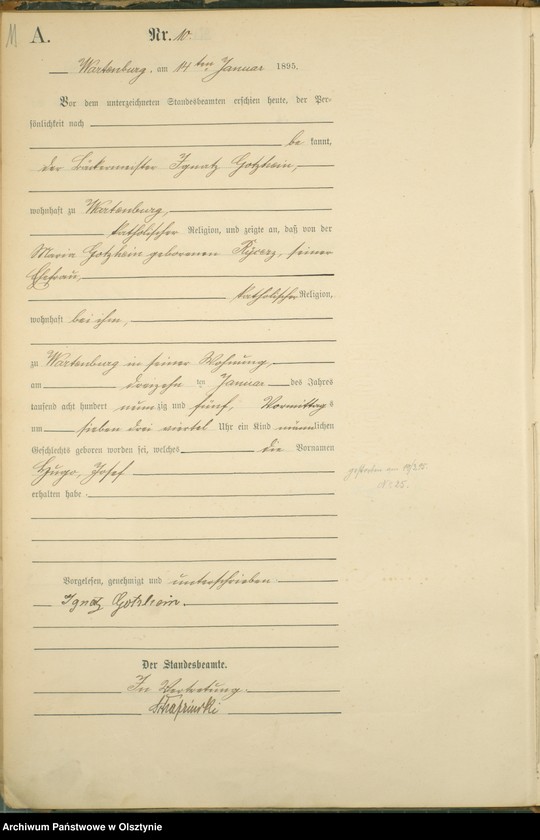 11
A.
Nr. 10.
Wartenburg, am 14ten Januar 1895.
Vor dem unterzeichneten Standesbeamten erschien heute, der Per-
sönlichkeit nach
be kannt,
der Bäckermeister Ignatz Gotzhein,
wohnhaft zu Wartenburg,
katholischer Religion, und zeigte an, daß von der
Maria Gotzhein geborenen Rycerz, seiner
Ehefrau,
katholischer Religion,
wohnhaft bei ihm,
zu Wartenburg in seiner Wohnung,
am dreizehn ten Januar des Jahres
tausend acht hundert neunzig und fünf, Vormittags
um sieben drei viertel Uhr ein Kind männlichen
Geschlechts geboren worden sei, welches die Vornamen
Hugo, Josef
erhalten habe.
gestorben am
N. 25.
Vorgelesen, genehmigt und unterschrieben
Ignatz Gotzhein.
Der Standesbeamte.
In Vertretung.
Archiwum Państwowe w Olsztynie